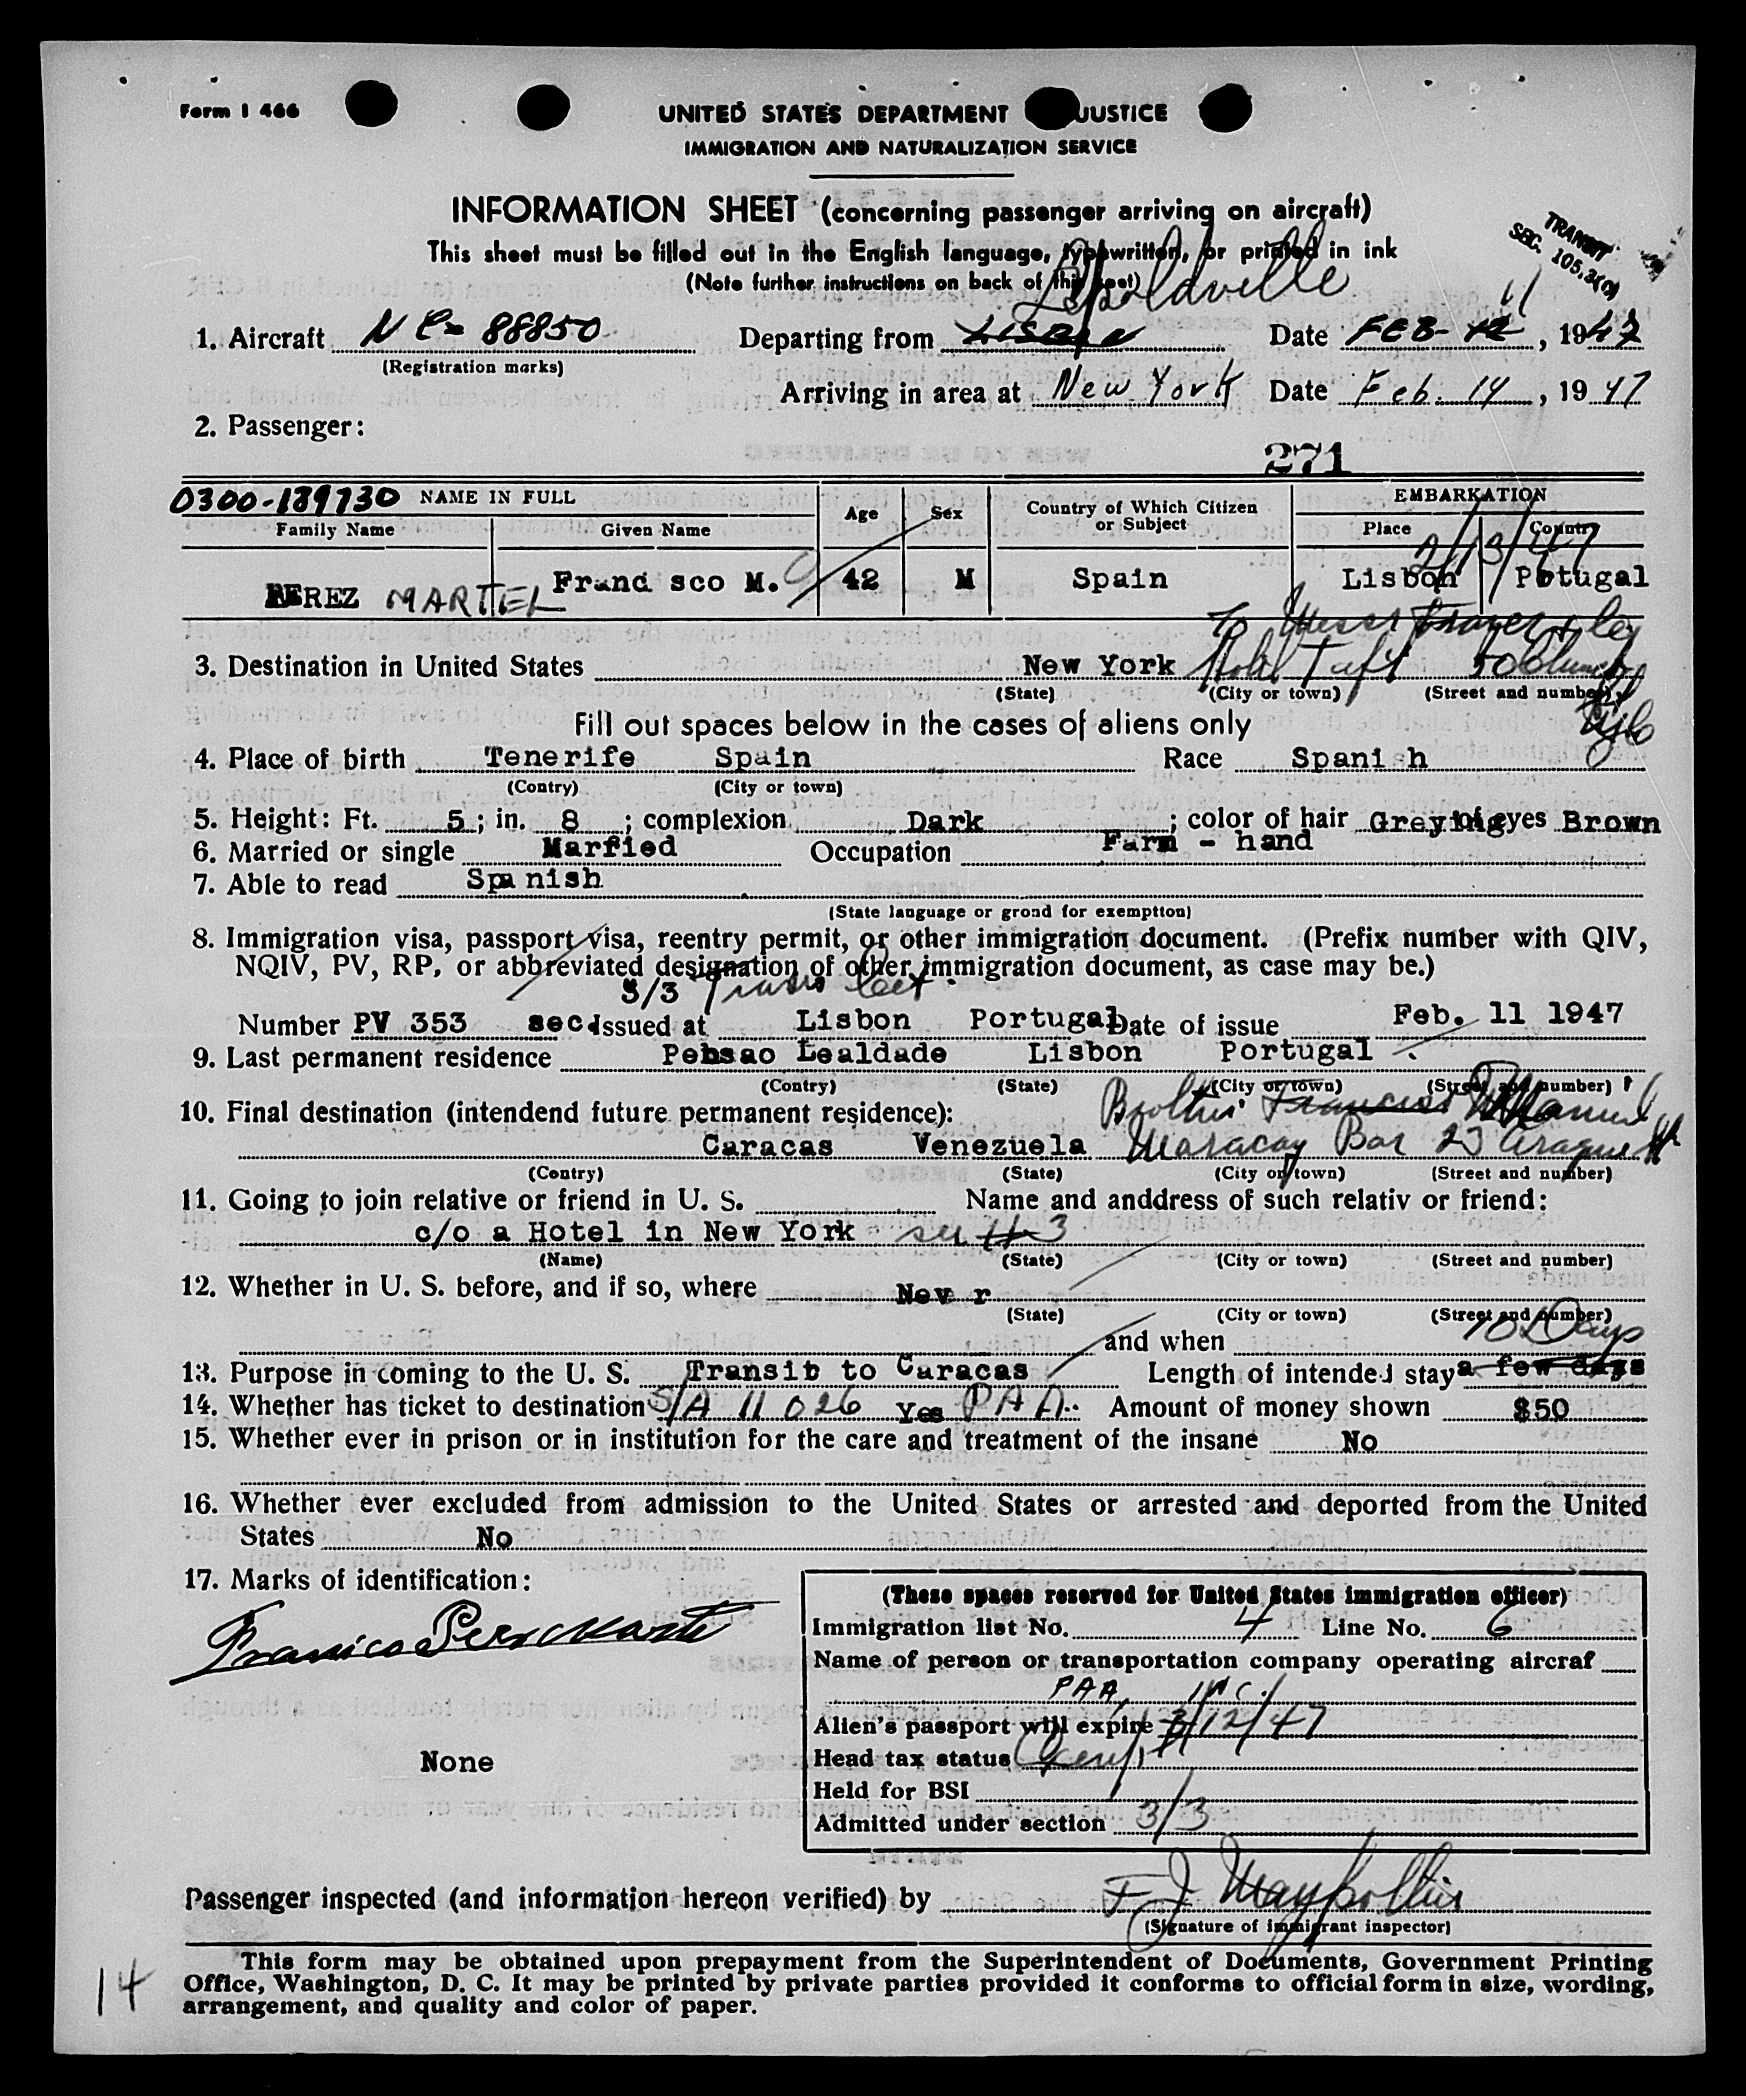 Form I 466
UNITED STATES DEPARTMENT JUSTICE
IMMIGRATION AND NATURALIZATION SERVICE
INFORMATION SHEET (concerning passenger arriving on aircraft)
This sheet must be filled out in the English language, typewritten, or printed in ink
(Note further instructions on back of this sheet)
TRANSIT
SEC. 105.3(c)
Leopoldville
11
1. Aircraft NC- 88850 Departing from Date FEB- 12, 1947
(Registration marks)
Arriving in area at New York Date Feb. 14, 1947
2. Passenger:
271
0300-189730 NAME IN FULL Age Sex Country of Which Citizen or Subject EMBARKATION
Family Name Given Name Place Country
2/13/47
PEREZ MARTEL Francisco M. 42 M Spain Lisbon Portugal
To Messrs & Co
3. Destination in United States New York Hotel Taft 50
(State) (City or town) (Street and number)
Fill out spaces below in the cases of aliens only
NYC
4. Place of birth Tenerife Spain Race Spanish
(Contry) (City or town)
5. Height: Ft. 5; in. 8; complexion Dark; color of hair Greying of eyes Brown
6. Married or single Married Occupation Farm - hand
7. Able to read Spanish
(State language or grond for exemption)
8. Immigration visa, passport visa, reentry permit, or other immigration document. (Prefix number with QIV,
NQIV, PV, RP, or abbreviated designation of other immigration document, as case may be.)
3/3 Trans Cert.
Number PV 353 sec. Issued at Lisbon Portugal Date of issue Feb. 11 1947
9. Last permanent residence Pensao Lealdade Lisbon Portugal
(Contry) (State) (City or town) (Street and number)
10. Final destination (intendend future permanent residence): Brother Francisco Manuel
Caracas Venezuela Maracay Bar 23
(Contry) (State) (City or town) (Street and number)
11. Going to join relative or friend in U. S. Name and anddress of such relativ or friend:
c/o a Hotel in New York see # 3
(Name) (State) (City or town) (Street and number)
12. Whether in U. S. before, and if so, where Nev r
(State) (City or town) (Street and number)
10 Days
and when
13. Purpose in coming to the U. S. Transit to Caracas Length of intended stay a few days
14. Whether has ticket to destination S/A 11 026 Yes PAA. Amount of money shown $50
15. Whether ever in prison or in institution for the care and treatment of the insane No
16. Whether ever excluded from admission to the United States or arrested and deported from the United
States No
17. Marks of identification:
None
(These spaces reserved for United States immigration officer)
Immigration list No. 4 Line No. 6
Name of person or transportation company operating aircraf
PAA, INC.
Alien's passport will expire 3/12/47
Head tax status Exempt
Held for BSI
Admitted under section 3/3
Passenger inspected (and information hereon verified) by F J
(Signature of immigrant inspector)
This form may be obtained upon prepayment from the Superintendent of Documents, Government Printing
Office, Washington, D. C. It may be printed by private parties provided it conforms to official form in size, wording,
arrangement, and quality and color of paper.
14